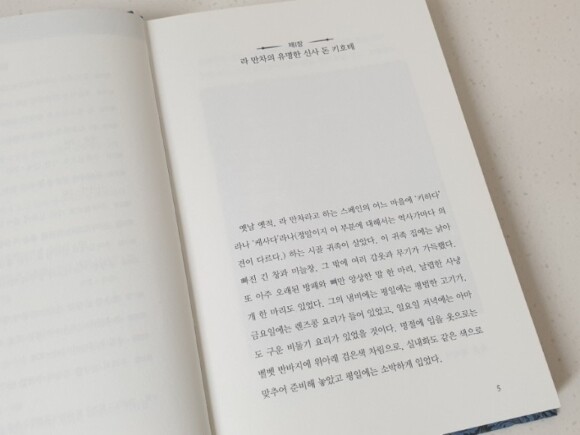 제1장
라 만차의 유명한 신사 돈 키호테
옛날 옛적, 라 만차라고 하는 스페인의 어느 마을에 '키하다'
라나 '케사다'라나(정말이지 이 부분에 대해서는 역사가마다 의
견이 다르다.) 하는 시골 귀족이 살았다. 이 귀족 집에는 낡아
빠진 긴 창과 마늘창, 그 밖에 여러 갑옷과 무기가 가득했다.
또 아주 오래된 방패와 빼만 앙상한 말 한 마리, 날렵한 사냥
개 한 마리도 있었다. 그의 냄비에는 평일에는 평범한 고기가,
금요일에는 렌즈콩 요리가 들어 있었고, 일요일 저녁에는 아마
도 구운 비둘기 요리가 있었을 것이다. 명절에 입을 옷으로는
벨벳 반바지에 위아래 검은색 차림으로, 실내화도 같은 색으로
맞추어 준비해 놓았고 평일에는 소박하게 입었다.
5